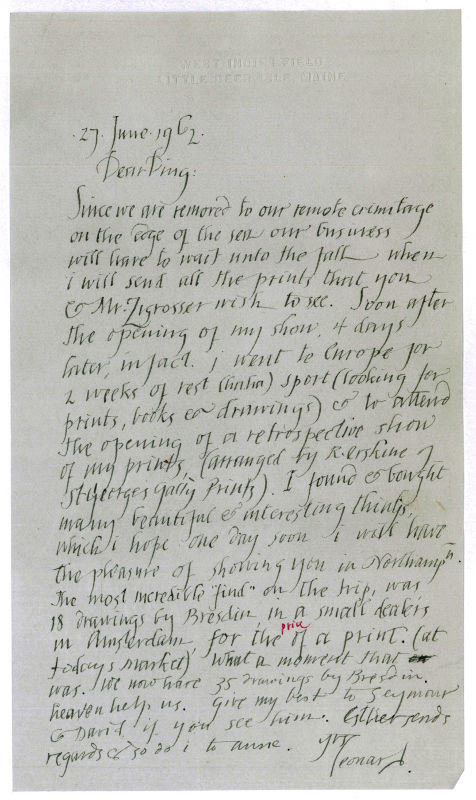 WEST INDIE FIELD
LITTLE DEER ISLE, MAINE
27. June. 1962.
Dear Ding:
Since we are removed to our remote ermitage
on the edge of the sea our business
will have to wait unto the fall when
i will send all the prints that you
& Mr. Zigrosser wish to see. Soon after
the opening of my show, 4 days
later, in fact. i went to Europe for
2 weeks of rest (haha) sport (looking for
prints, books & drawings) & to attend
the opening of a retrospective show
of my prints, (arranged by R. Erskine of
St Georges Gally Prints). I found & bought
many beautiful & interesting things,
which i hope one day soon i will have
the pleasure of showing you in Northampn.
The most incredible "find" on the trip, was
18 drawings by Bresdin, in a small dealers
in Amsterdam, for the price of a print. (at
todays market) What a moment that
was. We now have 35 drawings by Bresdin.
heaven help us. Give my best to Seymour
& David, if you see him. Esther sends
regards & so do i to anne. yrs
Leonard.